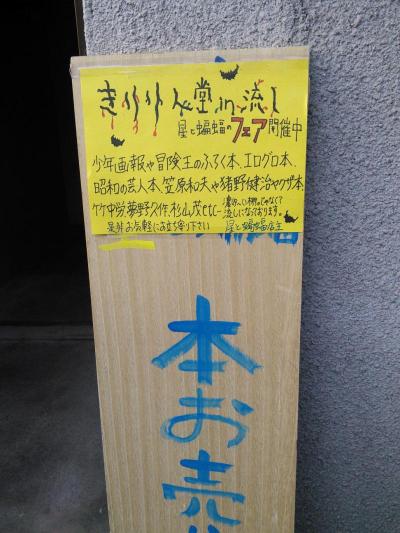 きりりん堂in流し
星と蝙蝠のフェア開催中
少年画報や冒険王のふろく本、エログロ本、
昭和の芸人本、笠原和夫や猪野健治ヤクザ本、
竹中労、夢野久作、杉山茂etc…
流しになっております。
是非お気軽にお立ち寄り下さい
星と蝙蝠店主
本お売